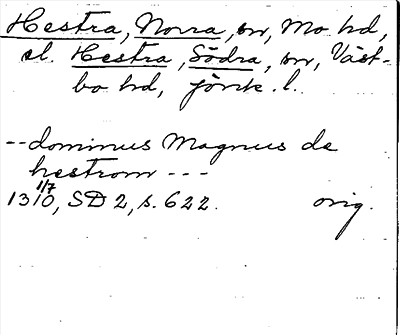 Hestra, Norra, sn, Mo hd,
el. Hestra, Södra, sn, Väst-
bo hd, jönk. l.
-- dominus Magnus de
hestrom ---
1/7
1310, SD 2, s. 622. orig.